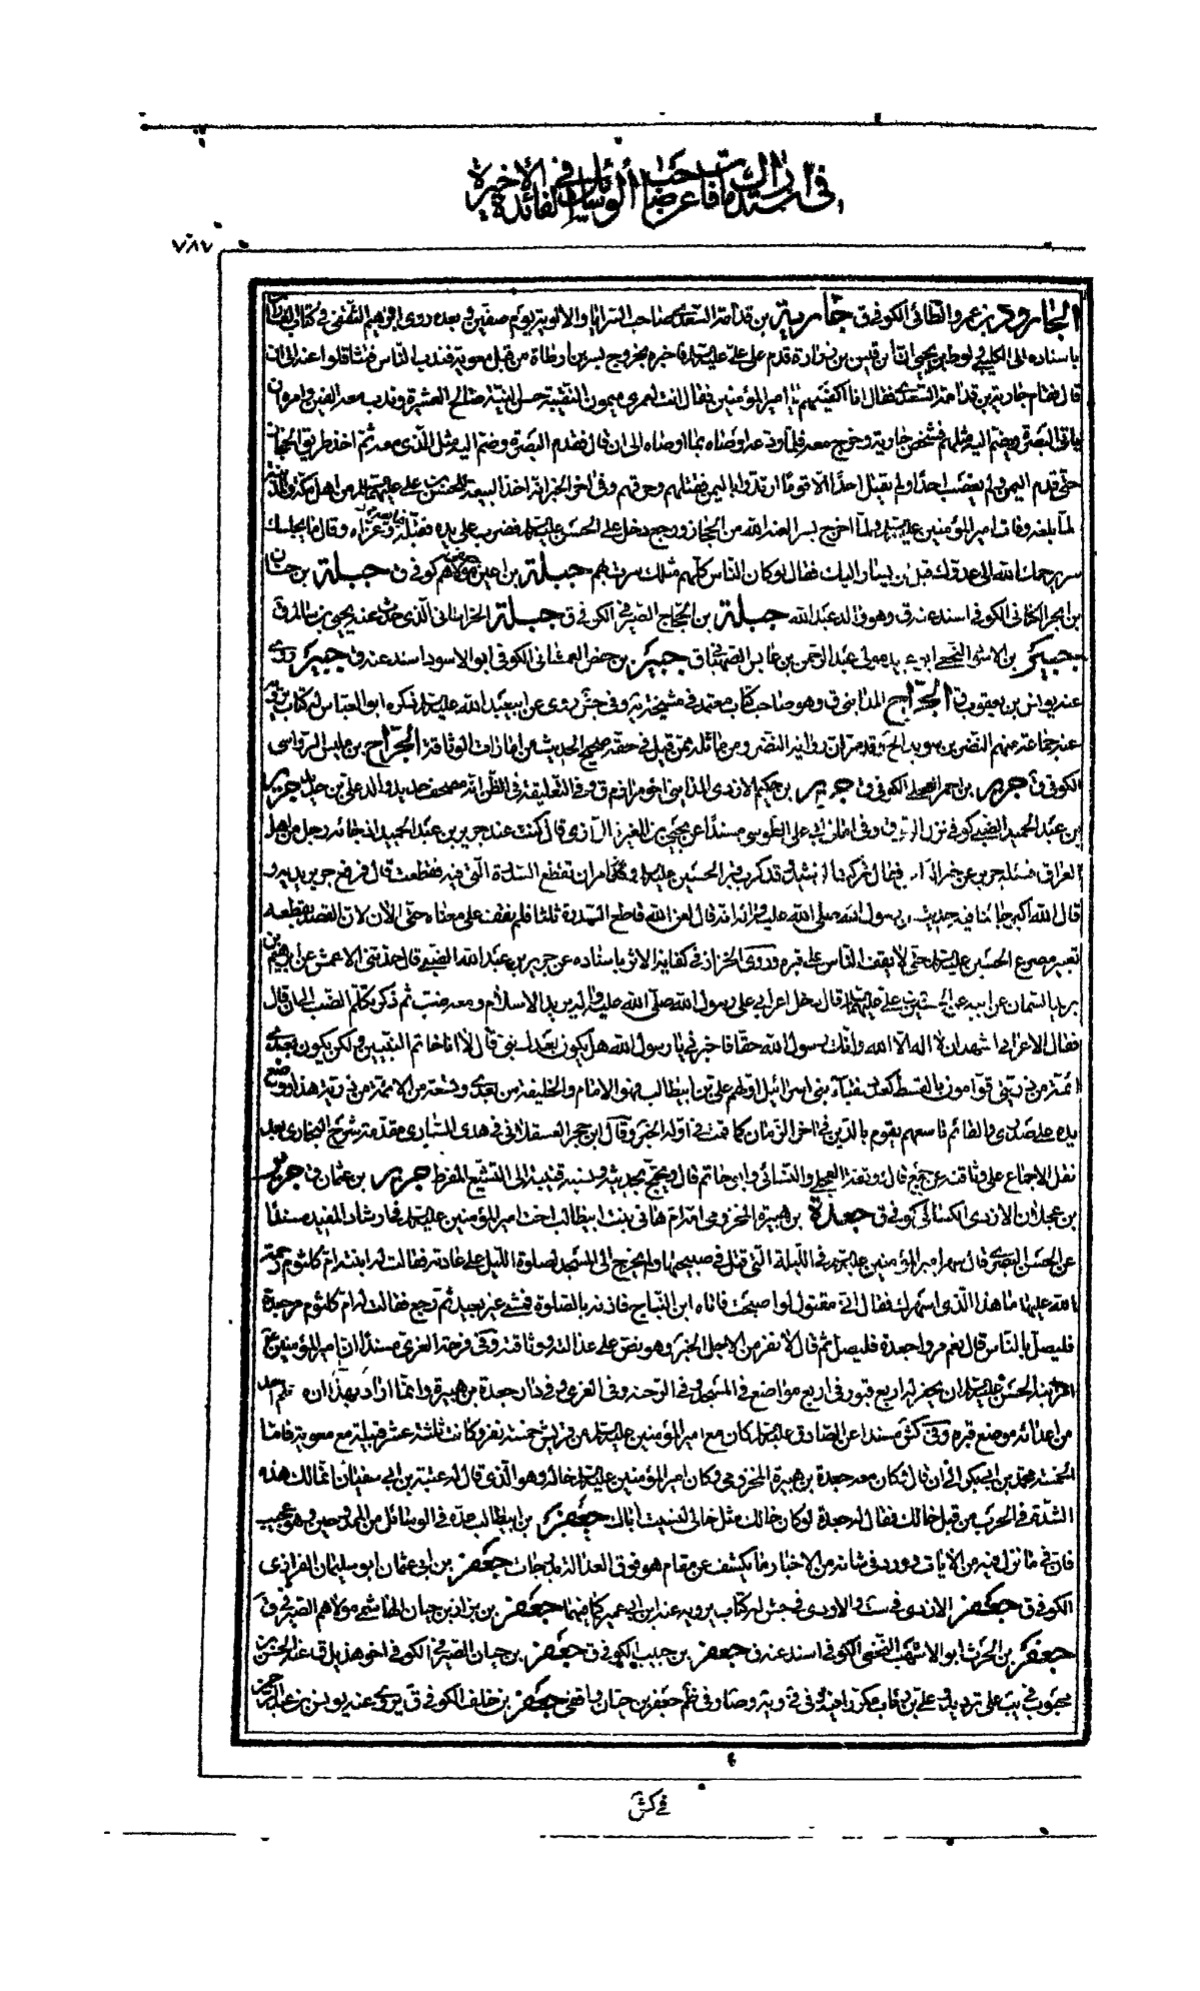 في استدراك ما فات عن صاحب الوسائل في الفائدة الأخيرة
٧٨٧
الجارود بن عمرو الطائي الكوفي ق جارية بن قدامة السعدي صاحب السرايا والالوية يوم صفين وبعده روى ابراهيم الثقفي في كتاب الغارات
باسناده الى الكلبي ولوط بن يحيى ان ابن قيس بن زرارة قدم على علي عليه السلام فاخبره بخروج بسر بن ارطاة من قبل معوية فندب الناس فتثاقلوا عنه الى ان
قال فقام جارية بن قدامة السعدي فقال انا اكفيكهم يا امير المؤمنين فقال انت لعمري ميمون النقيبة حسن النية صالح العشيرة وندب معه الفين وامره ان
ياتي البصرة ويضم اليه مثلهم فشخص جارية وخرج معه فلما ودعه اوصاه بما اوصاه الى ان قال فقدم البصرة وضم اليه مثل الذي معه ثم اخذ طريق الحجاز
حتى قدم اليمن ولم يغصب احدا ولم يقتل احدا الا قوما ارتدوا باليمن فقتلهم وحرقهم وفي اخر الخبر انه اخذ البيعة للحسن بن علي عليهما السلام من اهل مكة والمدينة
لما بلغه وفات امير المؤمنين عليه السلام ولما اخرج بسر لعنه الله من الحجاز ورجع دخل على الحسن عليه السلام فضرب على يده فبايعه وعزاه وقال ما يجلسك
سر يرحمك الله الى عدوك قبل ان يسار اليك فقال لو كان الناس كلهم مثلك سرت بهم جبلة بن اعين مولاهم كوفي ق جبلة بن حنان
بن ابجر الكناني الكوفي اسند عنه ق وهو والد عبد الله جبلة بن الحجاج الصيرفي الكوفي ق جبلة الخراساني الذي حدث عنه يحيى بن سالم ق
جبير بن الاسود النخعي ابو عبيد مولى عبد الرحمن بن عابس الصهباني ق جبير بن حفص العمشاني الكوفي ابو الاسود اسند عنه ق جبير روى
عنه يونس بن يعقوب ق الجراح المدايني ق وهو صاحب كتاب معتمد في مشيخة يه وفي جش روى عن ابيعبد الله عليه السلام ذكره ابو العباس له كتاب يرويه
عنه جماعة منهم النضر بن سويد الخ وقد مر ان رواية النضر ومن ماثله ممن قيل في حقه صحيح الحديث من امارات الوثاقة الجراح بن مليح الرواسي
الكوفي ق جرير بن احمر العجلي الكوفي ق جرير بن حكيم الازدي المدايني اخو مرازم ق وفي التعليقة في الظن انه مصحف حديد والد علي بن حديد جرير
بن عبد الحميد الضبي كوفي نزل الري ق وفي امالي ابي علي الطوسي مسندا عن يحيى بن المغيرة الرازي قال كنت عند جرير بن عبد الحميد اذ جائه رجل من اهل
العراق فسئله جرير عن خبر الناس فقال تركت الرشيد وقد كرب قبر الحسين عليه السلام وامر ان تقطع السدرة التي فيه فقطعت قال فرفع جرير يديه و
قال الله اكبر جائنا فيه حديث عن رسول الله صلى الله عليه وآله انه قال لعن الله قاطع السدرة ثلثا فلم نقف على معناه حتى الآن لان القصد بقطعه
تغيير مصرع الحسين عليه السلام حتى لا يقف الناس على قبره وروى الخزاز في كفاية الاثر باسناده عن جرير بن عبد الله الضبي قال حدثني الاعمش عن ابراهيم بن
بريد السمان عن ابيه عن الحسين بن علي عليهما السلام قال دخل اعرابي على رسول الله صلى الله عليه وآله يريد الاسلام ومعه ضب ثم ذكر تكلم الضب الى ان قال
فقال الاعرابي اشهد ان لا اله الا الله وانك رسول الله حقا فاخبرني يا رسول الله هل يكون بعدك نبي قال لا انا خاتم النبيين ولكن يكون بعدي
ائمة من ذريتي قوامون بالقسط كعدد نقباء بني اسرائيل اولهم علي بن ابيطالب فهو الامام والخليفة من بعدي وتسعة من الائمة من ذرية هذا ووضع
يده على صدري والقائم تاسعهم يقوم بالدين في اخر الزمان كما قمت في اوله الخبر وقال ابن حجر العسقلاني في هدى الساري مقدمة شرح البخاري بعد
نقل الاجماع على وثاقته عن جمع قال ووثقه العجلي والنسائي وابو حاتم قال ويحتج بحديثه ونسبه قتيبة الى التشيع المفرط جرير بن عثمان ق جرير
بن عجلان الازدي الكسائي كوفي ق جعدة بن هبيرة المخزومي امه ام هاني بنت ابيطالب اخت امير المؤمنين عليه السلام في ارشاد المفيد مسندا
عن الحسن البصري قال سهر امير المؤمنين عليه السلام في الليلة التي قتل في صبيحتها ولم يخرج الى المسجد لصلوة الليل على عادته فقالت له ابنته ام كلثوم رحمة
الله عليها ما هذا الذي اسهرك فقال اني مقتول لو اصبحت فاتاه ابن النباح فاذنه بالصلوة فمشى غير بعيد ثم رجع فقالت له ام كلثوم مر جعدة
فليصل بالناس قال نعم مروا جعدة فليصل ثم قال لا مفر من الاجل الخبر وهو نص على عدالته ووثاقته وفي فرحة الغري مسندا ان امير المؤمنين ع
امر ابنه الحسن عليه السلام ان يحفر له اربع قبور في اربع مواضع في المسجد وفي الرحبة وفي الغري وفي دار جعدة بن هبيرة وانما اراد بهذا ان لا يعلم احد
من اعدائه موضع قبره وفي كش مسندا عن الصادق عليه السلام كان مع امير المؤمنين عليه السلام من قريش خمسة نفر وكانت ثلثة عشر قبيلة مع معوية فاما
الخمسة محمد بن ابي بكر الى ان قال وكان معه جعدة بن هبيرة المخزومي وكان امير المؤمنين عليه السلام خاله وهو الذي قال له عتبة بن ابي سفيان انما لك هذه
الشدة في الحرب من قبل خالك فقال له جعدة لو كان خالك مثل خالي لنسيت اباك جعفر بن ابيطالب عده في الوسائل من الممدوحين وهو عجيب
فان في ما نزل فيه من الآيات وورد في شانه من الاخبار ما يكشف عن مقام هو فوق العدالة بدرجات جعفر بن ابي عثمان ابو سليمان الفزاري
الكوفي ق جعفر الازدي في ست والاودي في جش له كتاب يرويه عنه ابن ابي عمير كما فيهما جعفر بن بزاز بن حيان الهاشمي مولاهم الصيرفي ق
جعفر بن الحرث ابو الاشهب النخعي الكوفي اسند عنه ق جعفر بن حبيب الكوفي ق جعفر بن حيان الصيرفي الكوفي اخو هذيل ق عنه الحسن بن
محبوب في جعفر بن حيان واقفي جعفر بن خلف الكوفي ق يروي عنه يونس بن عبد الرحمن
في كش